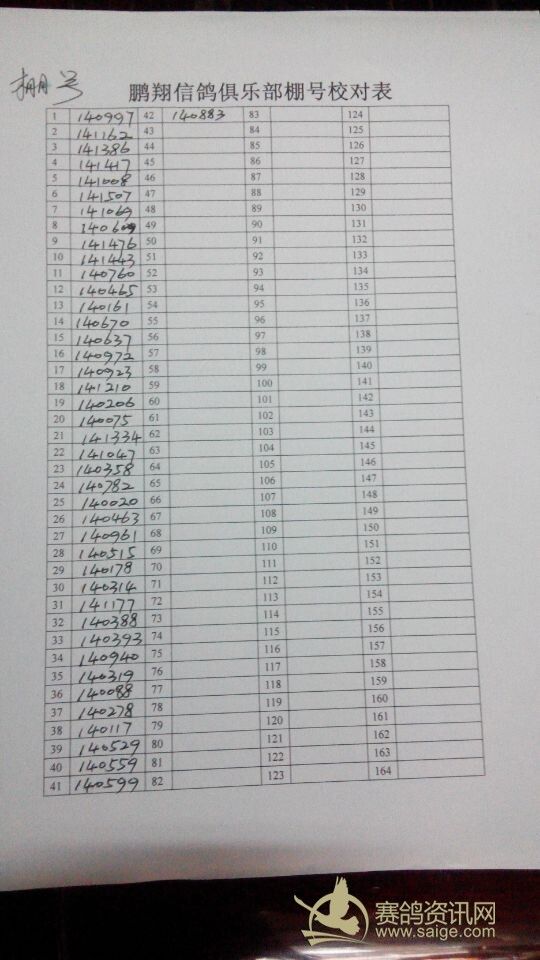 棚号
鹏翔信鸽俱乐部棚号校对表
1 140997 42 140883 83 124
2 141162 43 84 125
3 141386 44 85 126
4 141417 45 86 127
5 141008 46 87 128
6 141507 47 88 129
7 141069 48 89 130
8 49 90 131
9 141476 50 91 132
10 141443 51 92 133
11 140760 52 93 134
12 140465 53 94 135
13 140161 54 95 136
14 140670 55 96 137
15 140637 56 97 138
16 140972 57 98 139
17 140923 58 99 140
18 141210 59 100 141
19 140206 60 101 142
20 140075 61 102 143
21 141334 62 103 144
22 141047 63 104 145
23 140358 64 105 146
24 140782 65 106 147
25 140020 66 107 148
26 140463 67 108 149
27 140961 68 109 150
28 140515 69 110 151
29 140178 70 111 152
30 140314 71 112 153
31 141177 72 113 154
32 140388 73 114 155
33 140393 74 115 156
34 140940 75 116 157
35 140319 76 117 158
36 140088 77 118 159
37 140278 78 119 160
38 140117 79 120 161
39 140529 80 121 162
40 140559 81 122 163
41 140599 82 123 164
赛鸽资讯网
www.saige.com